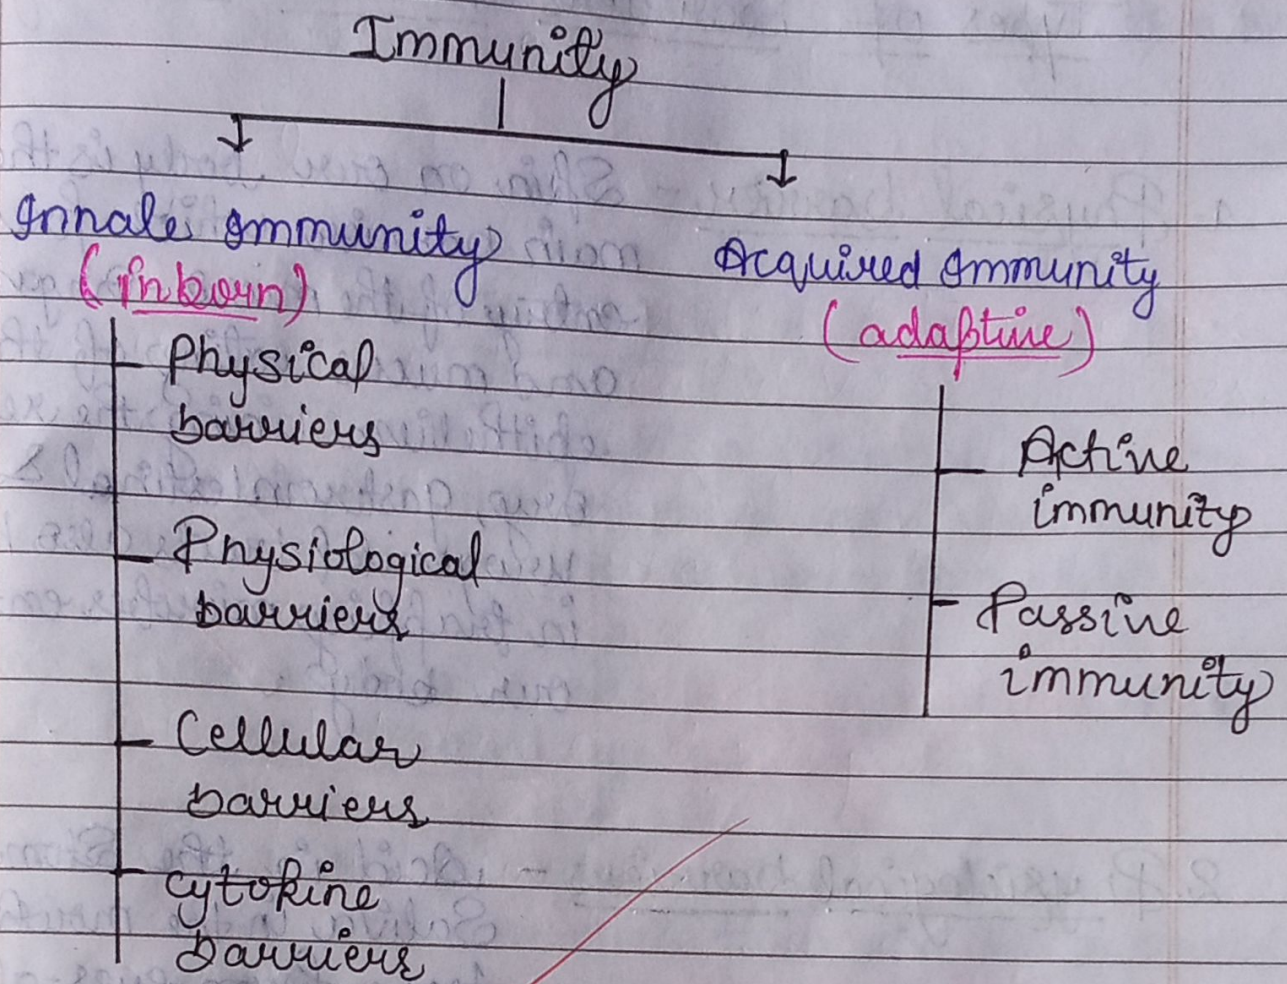 Immunity
Innate Immunity
(inborn)
Physical
barriers
Physiological
barriers
Cellular
barriers
cytokine
barriers
Acquired Immunity
(adaptive)
Active
immunity
Passive
immunity